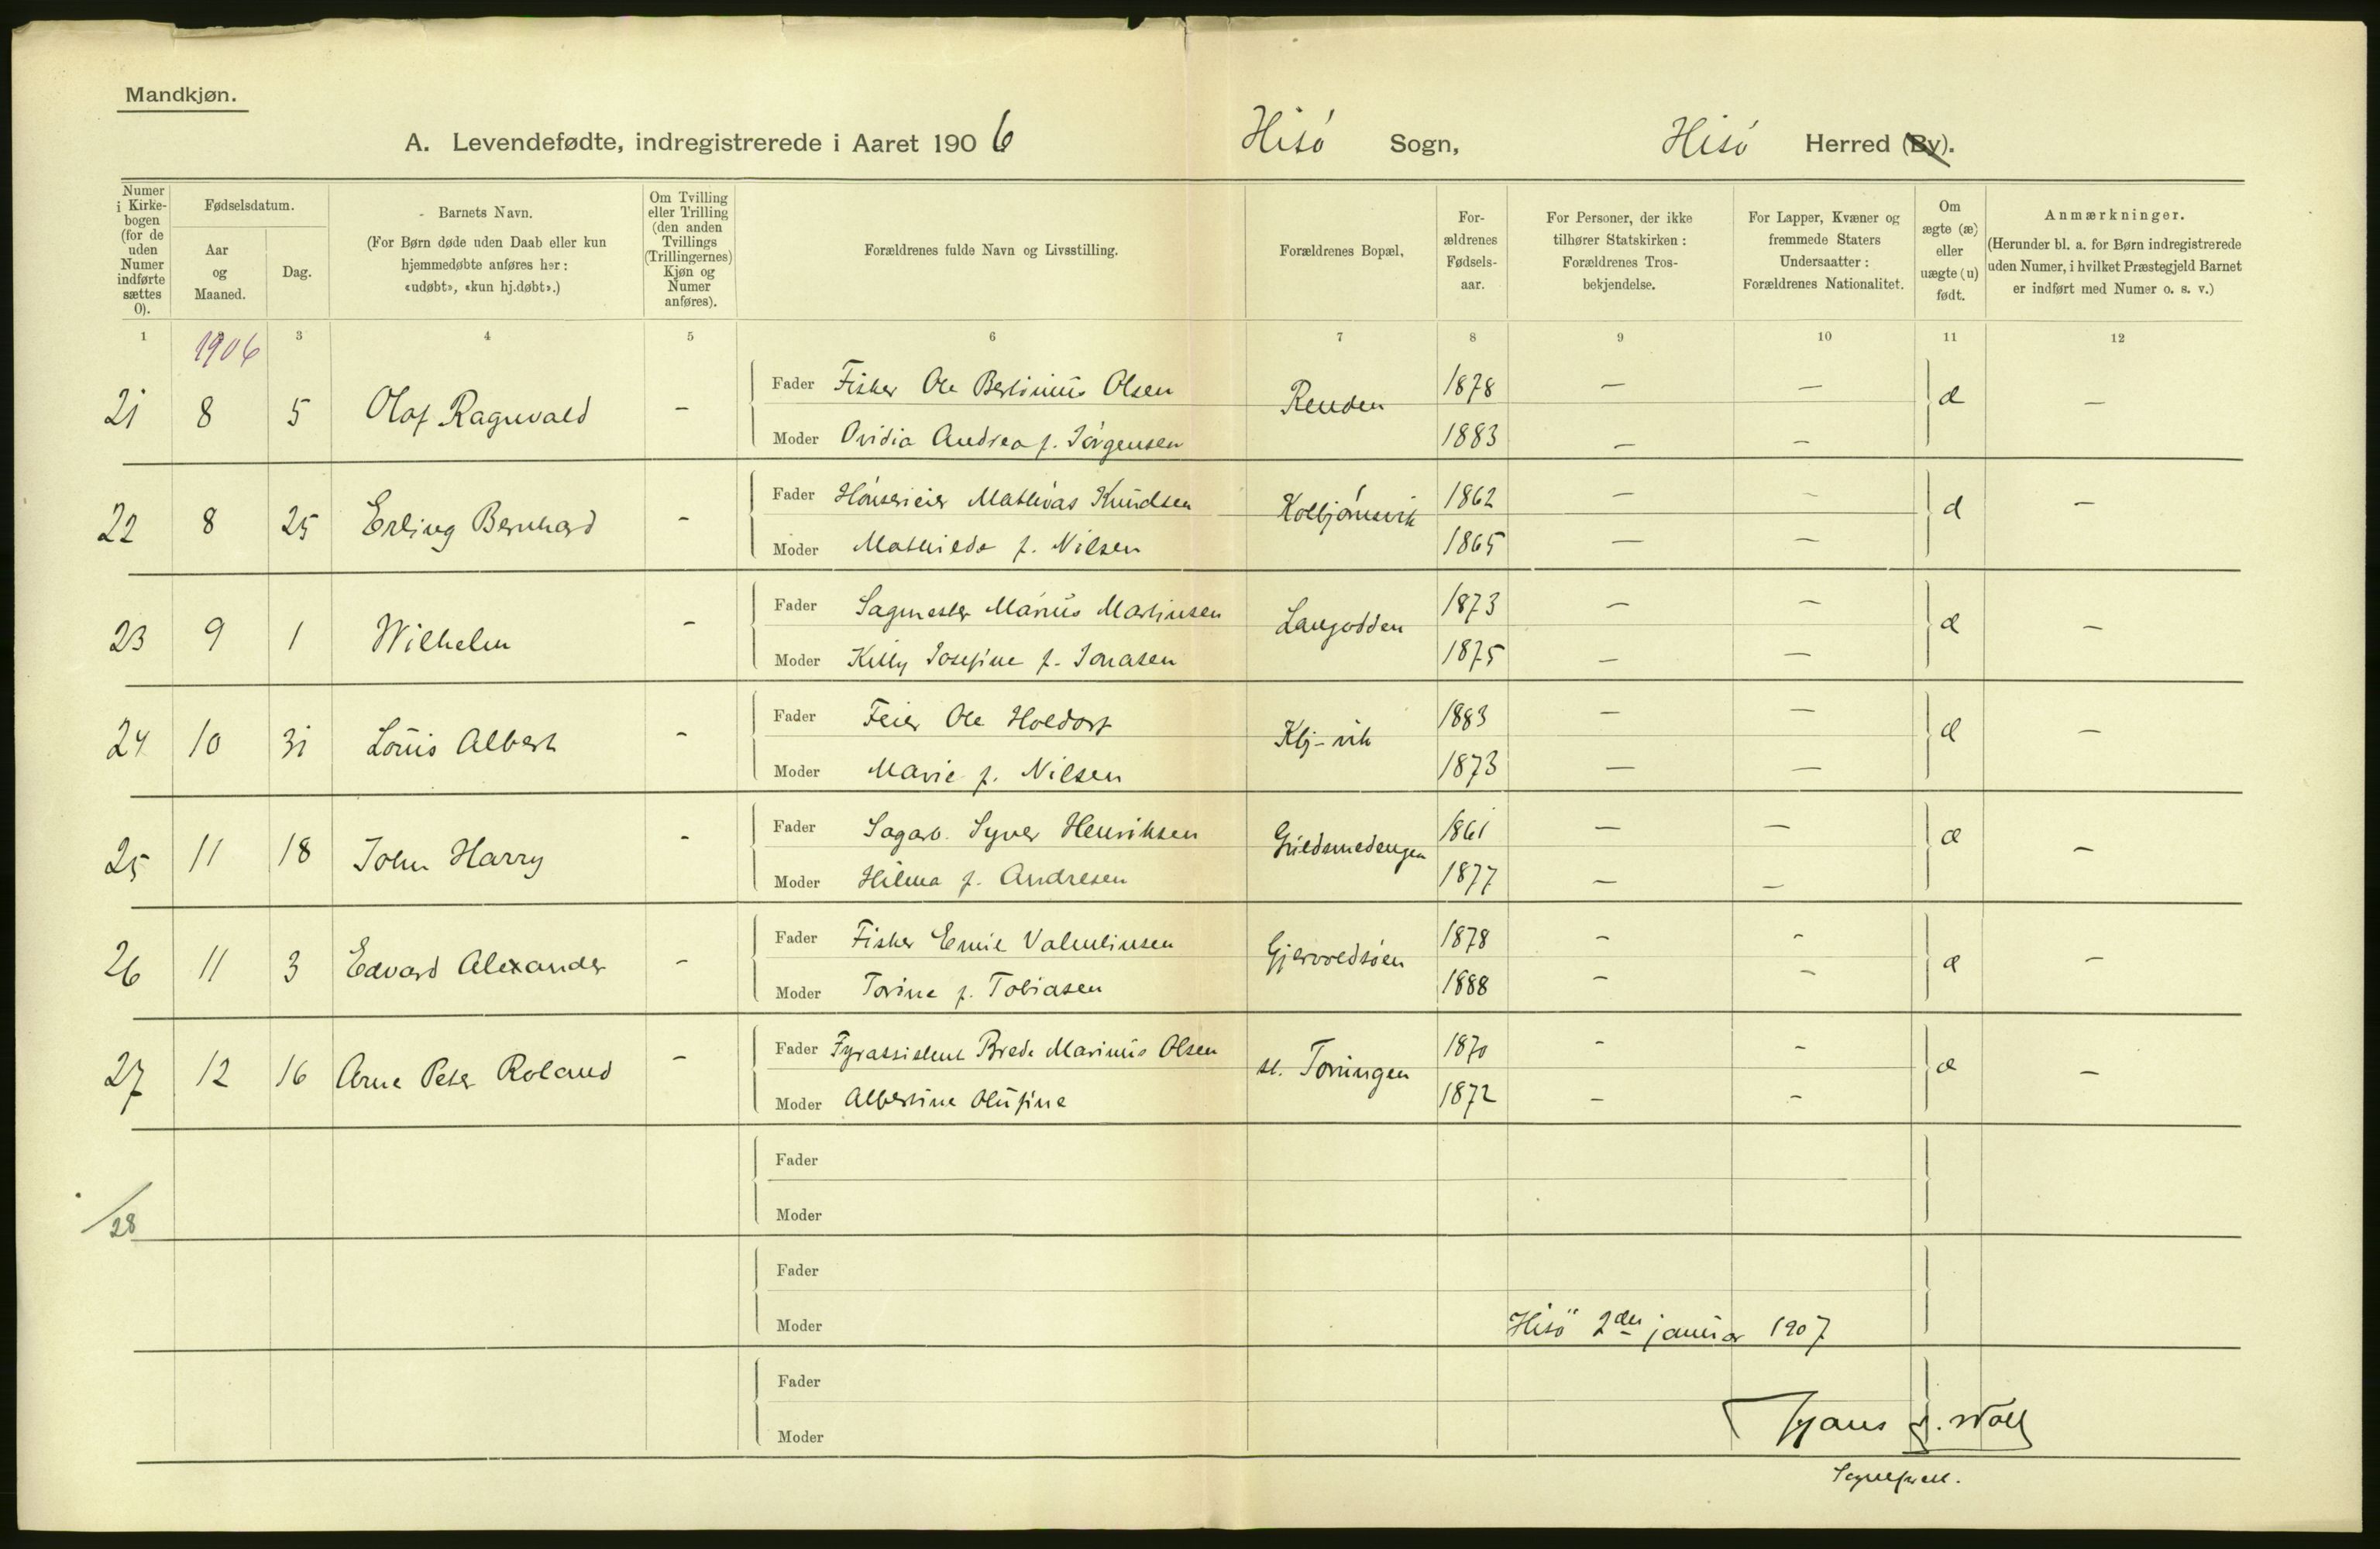 Mandkjøn.
A. Levendefødte, indregistrerede i Aaret 1906 Hisö Sogn, Hisö Herred (By).
Numer i Kirkebogen (for de uden Numer indførte sættes 0).
Fødselsdatum.
Aar og Maaned.
Dag.
Barnets Navn.
(For Børn døde uden Daab eller kun hjemmedøbte anføres her: «udøbt», «kun hj.døbt».)
Om Tvilling eller Trilling (den anden Tvillings (Trillingernes) Kjøn og Numer anføres).
Forældrenes fulde Navn og Livsstilling.
Forældrenes Bopæl,
Forældrenes Fødselsaar.
For Personer, der ikke tilhører Statskirken: Forældrenes Trosbekjendelse.
For Lapper, Kvæner og fremmede Staters Undersaatter: Forældrenes Nationalitet.
Om ægte (æ) eller uægte (u) født.
Anmærkninger.
(Herunder bl. a. for Børn indregistrerede uden Numer, i hvilket Præstegjeld Barnet er indført med Numer o. s. v.)
1 3 4 5 6 7 8 9 10 11 12
1906
21 8 5 Olaf Ragnvald - Fader Fisker Ole Bertinius Olsen Renden 1878 — — æ —
Moder Ovidia Andrea f. Jörgensen 1883 — —
22 8 25 Erling Bernhard - Fader Hönserieier Mathias Knudsen Kolbjörnsvik 1862 — — æ —
Moder Mathilde f. Nilsen 1865 — —
23 9 1 Wilhelm - Fader Sagmester Marius Martinsen Langodden 1873 — — æ —
Moder Kitty Josefine f. Jonasen 1875 — —
24 10 31 Louis Albert - Fader Feier Ole Holdorf Kbj-vik 1883 — — æ —
Moder Marie f. Nilsen 1873 — —
25 11 18 John Harry - Fader Sagarb. Syver Henriksen Guldsmedengen 1861 — — æ —
Moder Hilma f. Andresen 1877 — —
26 11 3 Edvard Alexander - Fader Fisker Emil Valentinsen Gjervoldsöen 1878 - - æ -
Moder Torine f. Tobiasen 1888 - -
27 12 16 Arne Peter Roland - Fader Fyrassistent Brede Marinius Olsen st. Torungen 1870 - - æ -
Moder Albertine Olufine 1872 - -
Fader
Moder
/28
Fader
Moder
Hisö 2den januar 1907
Fader
Moder
Hans J. Wold
Sognepræst.